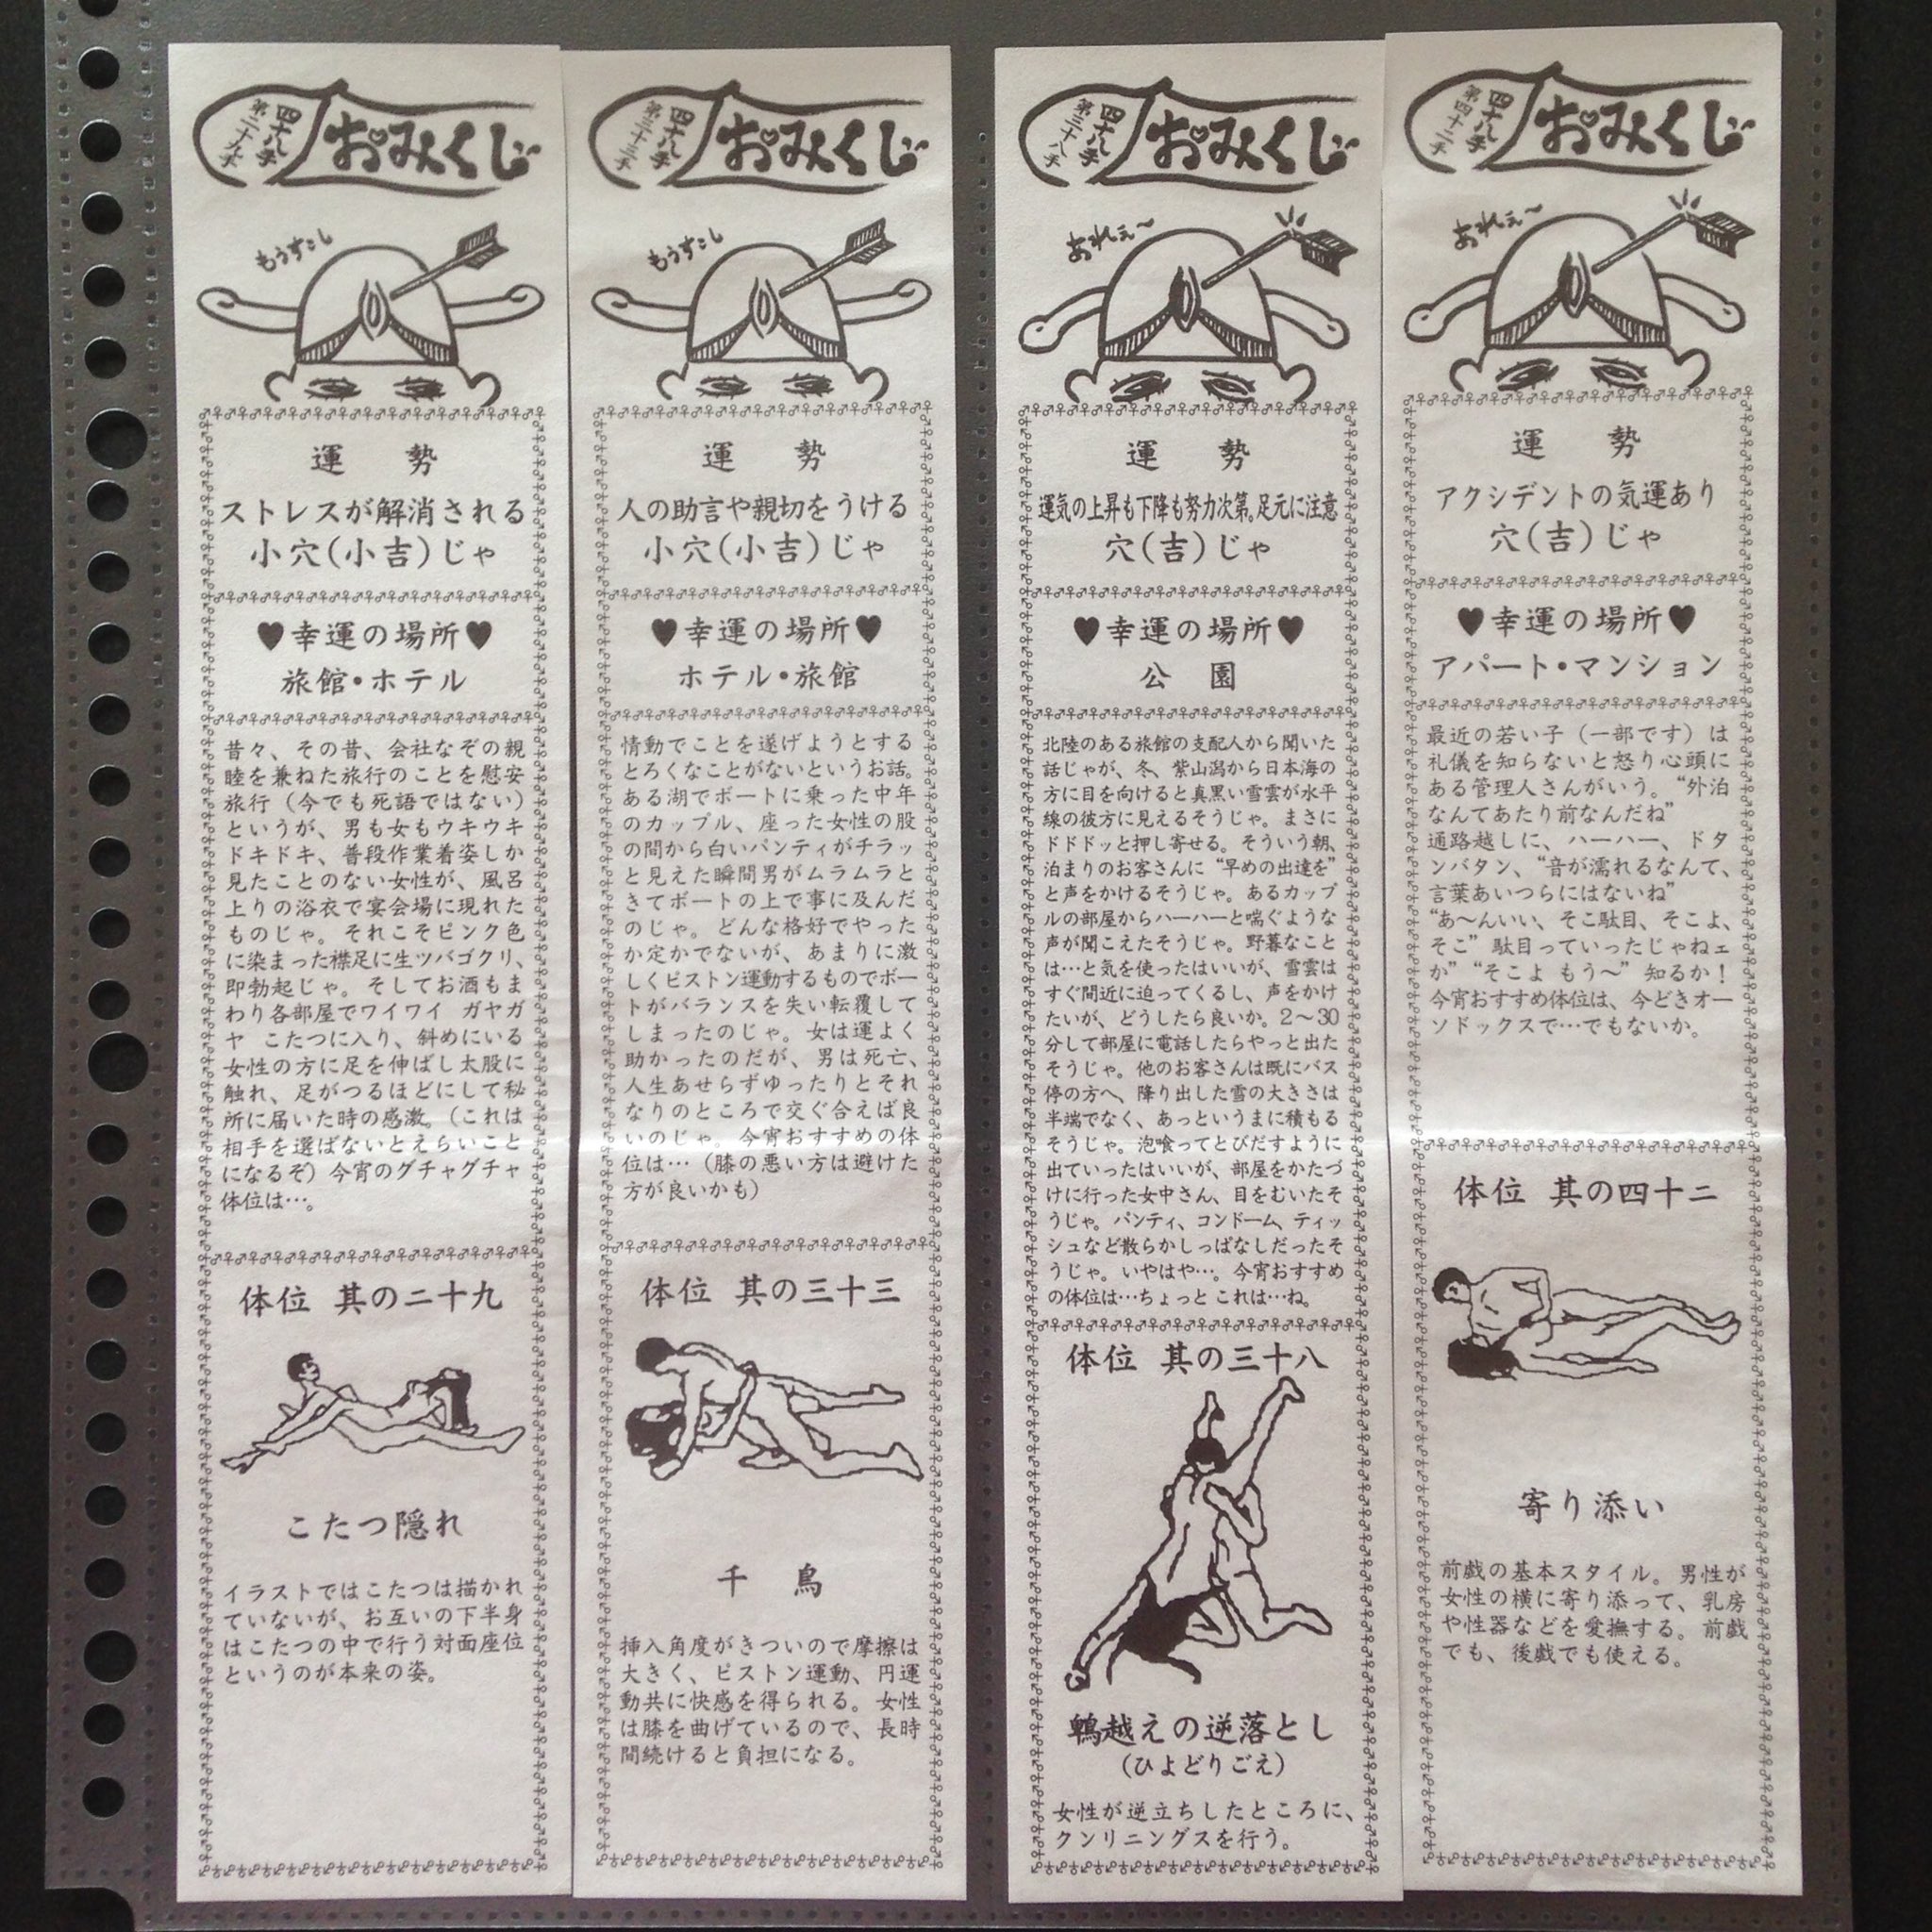 四十八手
第二十九手
おみくじ
もうすこし
運 勢
ストレスが解消される
小穴(小吉)じゃ
♥幸運の場所♥
旅館・ホテル
昔々、その昔、会社なぞの親
睦を兼ねた旅行のことを慰安
旅行(今でも死語ではない)
というが、男も女もウキウキ
ドキドキ、普段作業着姿しか
見たことのない女性が、風呂
上りの浴衣で宴会場に現れた
ものじゃ。それこそピンク色
に染まった襟足に生ツバゴクリ、
即勃起じゃ。そしてお酒もま
わり各部屋でワイワイ ガヤガ
ヤ こたつに入り、斜めにいる
女性の方に足を伸ばし太股に
触れ、足がつるほどにして秘
所に届いた時の感激。(これは
相手を選ばないとえらいこと
になるぞ)今宵のグチャグチャ
体位は…。
体位 其の二十九
こたつ隠れ
イラストではこたつは描かれ
ていないが、お互いの下半身
はこたつの中で行う対面座位
というのが本来の姿。
四十八手
第三十三手
おみくじ
もうすこし
運 勢
人の助言や親切をうける
小穴(小吉)じゃ
♥幸運の場所♥
ホテル・旅館
情動でことを遂げようとする
とろくなことがないというお話。
ある湖でボートに乗った中年
のカップル、座った女性の股
の間から白いパンティがチラッ
と見えた瞬間男がムラムラと
きてボートの上で事に及んだ
のじゃ。どんな格好でやった
か定かでないが、あまりに激
しくピストン運動するものでボー
トがバランスを失い転覆して
しまったのじゃ。女は運よく
助かったのだが、男は死亡、
人生あせらずゆったりとそれ
なりのところで交ぐ合えば良
いのじゃ。今宵おすすめの体
位は…(膝の悪い方は避けた
方が良いかも)
体位 其の三十三
千 鳥
挿入角度がきついので摩擦は
大きく、ピストン運動、円運
動共に快感を得られる。女性
は膝を曲げているので、長時
間続けると負担になる。
四十八手
第三十八手
おみくじ
あれぇ〜
運 勢
運気の上昇も下降も努力次第。足元に注意
穴(吉)じゃ
♥幸運の場所♥
公 園
北陸のある旅館の支配人から聞いた
話じゃが、冬、紫山潟から日本海の
方に目を向けると真黒い雪雲が水平
線の彼方に見えるそうじゃ。まさに
ドドドッと押し寄せる。そういう朝、
泊まりのお客さんに“早めの出達を”
と声をかけるそうじゃ。あるカップ
ルの部屋からハーハーと喘ぐような
声が聞こえたそうじゃ。野暮なこと
は…と気を使ったはいいが、雪雲は
すぐ間近に迫ってくるし、声をかけ
たいが、どうしたら良いか。2〜30
分して部屋に電話したらやっと出た
そうじゃ。他のお客さんは既にバス
停の方へ、降り出した雪の大きさは
半端でなく、あっというまに積もる
そうじゃ。泡喰ってとびだすように
出ていったはいいが、部屋をかたづ
けに行った女中さん、目をむいたそ
うじゃ。パンティ、コンドーム、ティッ
シュなど散らかしっぱなしだったそ
うじゃ。いやはや…。今宵おすすめ
の体位は…ちょっと これは…ね。
体位 其の三十八
鵯越えの逆落とし
(ひよどりごえ)
女性が逆立ちしたところに、
クンリニングスを行う。
四十八手
第四十二手
おみくじ
あれぇ〜
運 勢
アクシデントの気運あり
穴(吉)じゃ
♥幸運の場所♥
アパート・マンション
最近の若い子(一部です)は
礼儀を知らないと怒り心頭に
ある管理人さんがいう。“外泊
なんてあたり前なんだね”
通路越しに、ハーハー、ドタ
ンバタン、“音が濡れるなんて、
言葉あいつらにはないね”
“あ〜んいい、そこ駄目、そこよ、
そこ”駄目っていったじゃねェ
か”“そこよ もう〜”知るか!
今宵おすすめ体位は、今どきオー
ソドックスで…でもないか。
体位 其の四十二
寄り添い
前戯の基本スタイル。男性が
女性の横に寄り添って、乳房
や性器などを愛撫する。前戯
でも、後戯でも使える。